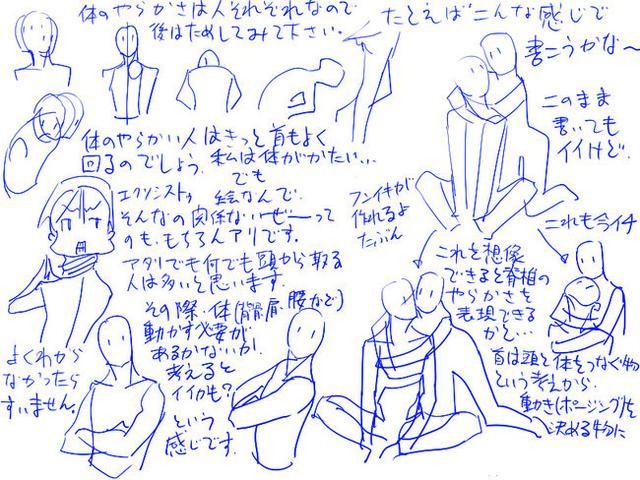 体のやらかさは人それぞれなので
後はためしてみて下さい。
体のやらかい人はきっと首もよく
回るのでしょう。私は体がかたい…
でも
エクソシスト
絵なんで
そんなの関係ないぜーって
のも、もちろんアリです。
アタリでも何でも頭から取る
人は多いと思います。
その際、体(
肩、腰など)
動かす必要が
あるかないか
考えると
イイかも?
という
感じです。
よくわから
なかったら
すいません。
たとえばこんな感じで
書こうかな〜
このまま
書いても
イイけど、
フンイキが
作れるよ
たぶん
これも今イチ
これを想像
できると
の
やらかさを
表現できる
かと…
首は頭と体をつなぐ物
という考えから、
動き(ポージング)を
決める物に